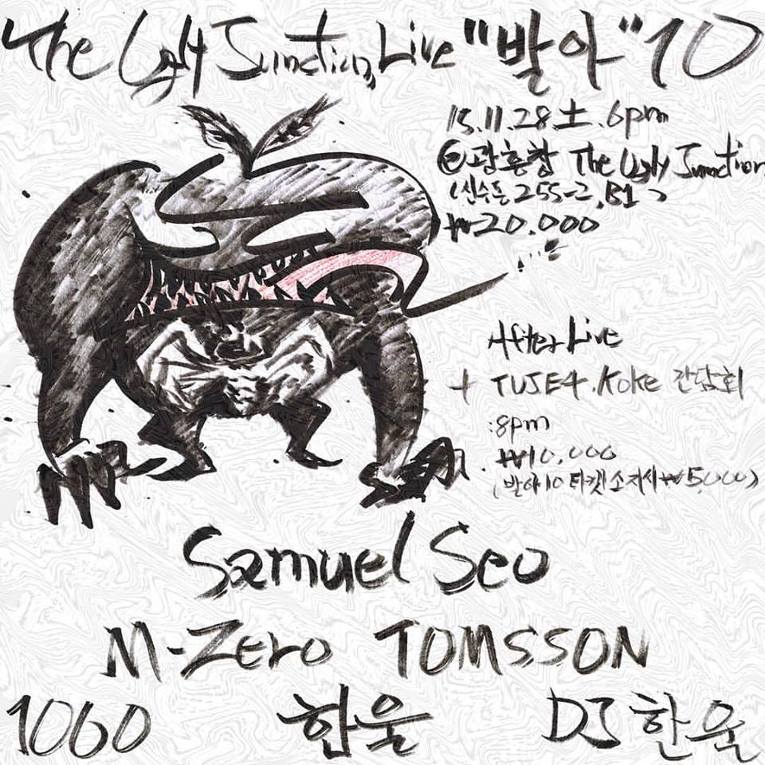 The Ugly Junction Live "발아" 10
15.11.28.土.6pm
@광흥창 The Ugly Junction
(신수동 255-2, B1)
₩20.000
After Live
+ TUJE4.Koke 간담회
:8pm
₩10,000
(발아10 티켓 소지시 ₩5,000)
Samuel Seo
M-Zero TOMSSON
1060 한울 DJ 한울